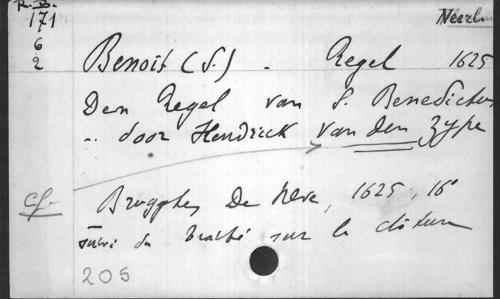 R.B.
171
6
2
Neerl.
Benoit (S.) . Regel 1625
Den Regel van S. Benedictus
.. door Hendrick van den Zype
cf.
De Neve, 1625, 16°
suivi du traité sur la clôture
205